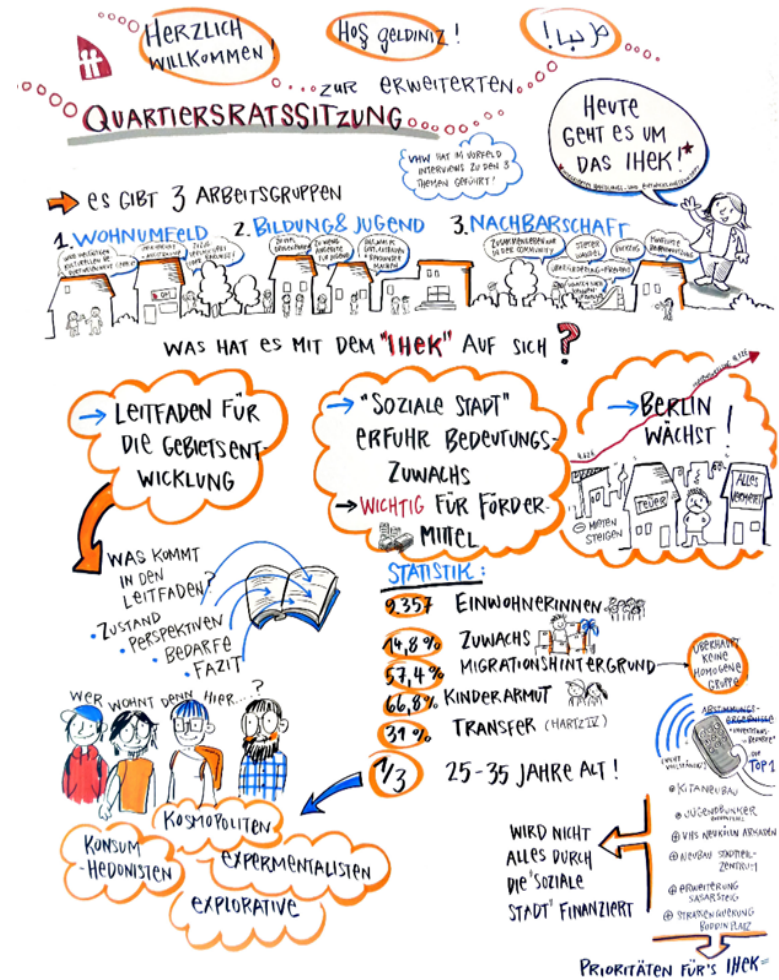 HERZLICH
WILLKOMMEN!
HOŞ GELDINIZ!
مرحبا!
ZUR ERWEITERTEN
QUARTIERSRATSSITZUNG
HEUTE
GEHT ES UM
DAS IHEK!*
VHW HAT IM VORFELD
INTERVIEWS ZU DEN 3
THEMEN GEFÜHRT!
ES GIBT 3 ARBEITSGRUPPEN
1. WOHNUMFELD
2. BILDUNG & JUGEND
3. NACHBARSCHAFT
ZUSAMMENLEBEN
IN DER COMMUNITY
STETER
WANDEL
WAS HAT ES MIT DEM "IHEK" AUF SICH?
→ LEITFADEN FÜR
DIE GEBIETSENT-
WICKLUNG
→ "SOZIALE STADT"
ERFUHR BEDEUTUNGS-
ZUWACHS
→ WICHTIG FÜR FÖRDER-
MITTEL
→ BERLIN
WÄCHST!
TEUER
ALLES
VERMIETET
MIETEN
STEIGEN
WAS KOMMT
IN DEN
LEITFADEN?
• ZUSTAND
• PERSPEKTIVEN
• BEDARFE
• FAZIT
STATISTIK:
9.357 EINWOHNERINNEN
14,8% ZUWACHS
57,4% MIGRATIONSHINTERGRUND
ÜBERHAUPT
KEINE
HOMOGENE
GRUPPE!
66,8% KINDERARMUT
31% TRANSFER (HARTZ IV)
1/3 25-35 JAHRE ALT!
WER WOHNT DENN HIER...?
KOSMOPOLITEN
KONSUM
-HEDONISTEN
EXPERMENTALISTEN
EXPLORATIVE
ABSTIMMUNGS-
ERGEBNISSE
(NICHT
VOLLSTÄNDIG)
TOP 1
KITANEUBAU
JUGENDBUNKER
⊕ VHS NEUKÖLLN ARKADEN
⊕ NEUBAU STADTTEIL-
ZENTRUM
⊕ ERWEITERUNG
SASARSTEIG
⊕ STRASSENQUERUNG
BODDINPLATZ
WIRD NICHT
ALLES DURCH
DIE "SOZIALE
STADT" FINANZIERT
PRIORITÄTEN FÜR'S IHEK